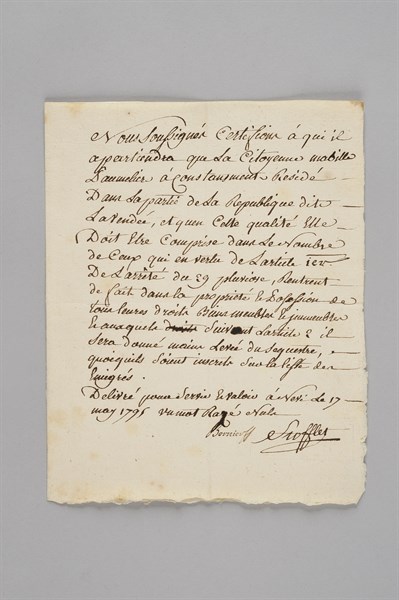 Nous Soussignés Certifions à qui il
apartiendra que La Citoyenne mabille
Laumelier à Constament Residé
Dans La partie de La Republique dit
La Vendée, et qu'en Cette qualité Elle
Doit Etre Comprise dans Le Nombre
de Ceux qui en vertu de L'article 1er
De L'arrêté du 29 pluviose, Rentrent
de fait dans la propriété & Possesion de
tous leures droits Biens meubles & immeubles
& auxquels droits Suivant L'article 2 il
Sera donné main Levée du Sequestre,
quoiqu'ils Soient inscrits Sur la liste des
Emigrés.
Délivré pour Servir & valoir à 17
may 1795 un mot Rayé Nul
Bernier Stofflet